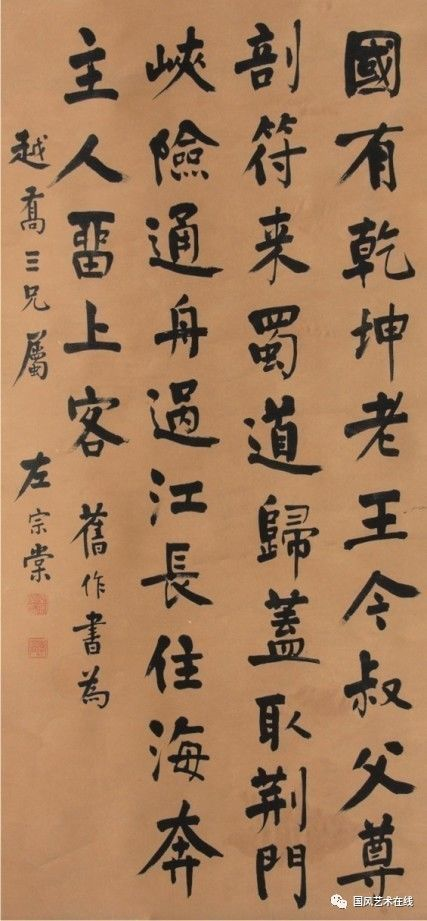 國有乾坤老王今叔父尊
剖符来蜀道歸蓋取荆門
峽險通舟過江長住海奔
主人畱上客 舊作書為
越喬三兄屬 左宗棠
国风艺术在线